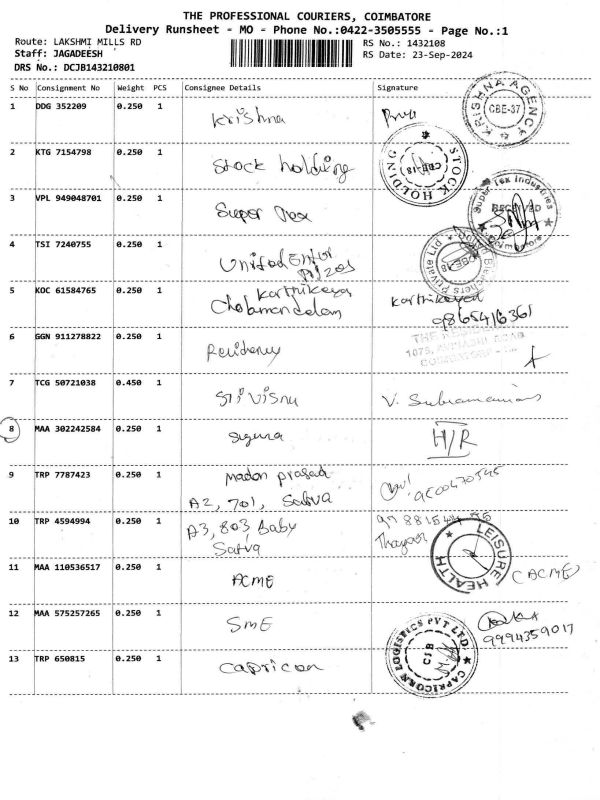 THE PROFESSIONAL COURIERS, COIMBATORE
Delivery Runsheet - MO - Phone No.:0422-3505555 - Page No.:1
Route: LAKSHMI MILLS RD
RS No.: 1432108
Staff: JAGADEESH
RS Date: 23-Sep-2024
DRS No.: DCJB143210801
S No Consignment No Weight PCS Consignee Details Signature
1 DDG 352209 0.250 1 Krishna
KRISHNA AGENCY
CBE-37
2 KTG 7154798 0.250 1 Stock holding
STOCK HOLDING
CBE-18
3 VPL 949048701 0.250 1 Super Tex
Super Tex Industries
RECEIVED
Coimbatore
4 TSI 7240755 0.250 1 Unifod Enter
Bleachers Private Ltd
5 KOC 61584765 0.250 1 Karthikeya
Cholamandalam
Karthikeyad
9865416361
6 GGN 911278822 0.250 1 Residency
7 TCG 50721038 0.450 1 Sri Visnu V. Subramanian
8 MAA 302242584 0.250 1 Siguna H/R
9 TRP 7787423 0.250 1 madan prasad
A2, 701, Satva
9500470545
10 TRP 4594994 0.250 1 A3, 803 Baby
Satva
11 MAA 110536517 0.250 1 ACME
LEISURE HEALTH
(ACME)
12 MAA 575257265 0.250 1 SME
9994359017
13 TRP 650815 0.250 1 Capricon
CAPRICORN LOGISTICS PVT LTD.
CJB